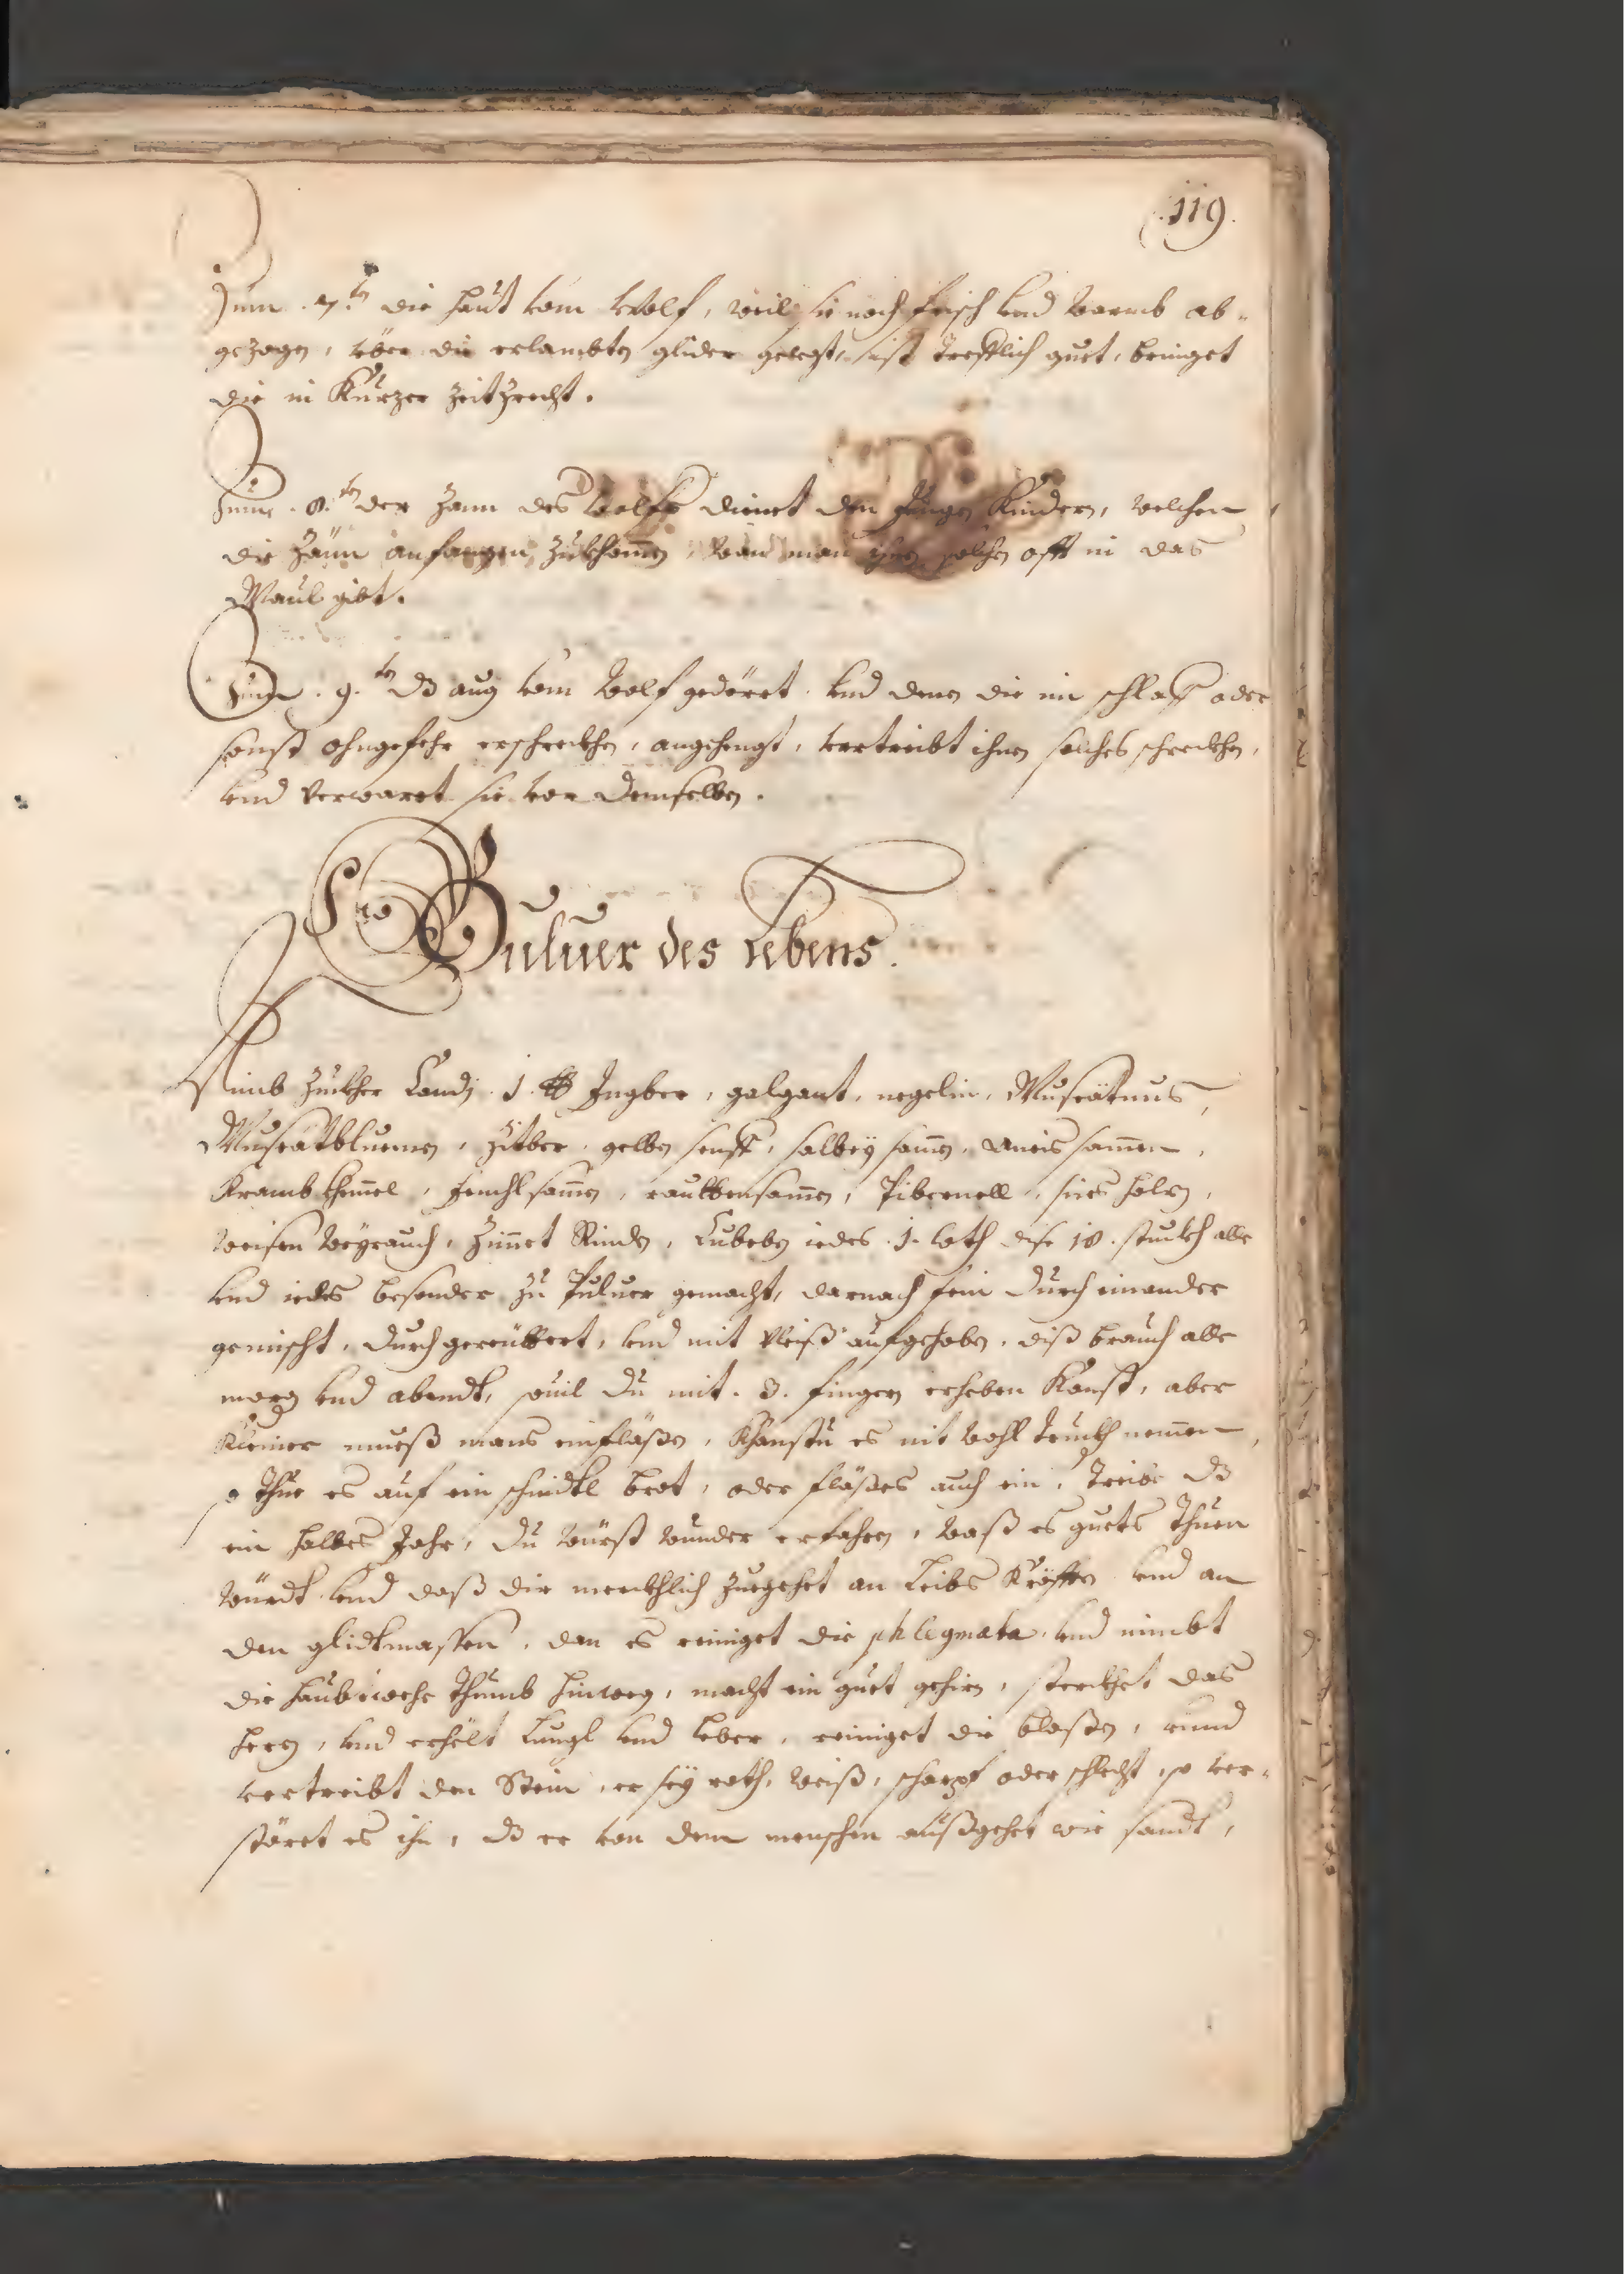 119.
Zum .7.ten die haut vom Wolf, weil sie noch frisch vnd warmb ab-
gezogen, über die erlambten glider gelegt, ist trefflich guet, bringet
die in Kurzer zeit zrecht.
Zum .8.ten der Zann des Wolfs dienet den Jungen Kindern, welchen
die Zänn anfangen zukhomen, wan man ihnen solchen offt in das
Maul gibt.
Zum .9.ten dz aug vom Wolf gedörret vnd denen die im schlaff oder
sonst ohngefehr erschreckhen, angehengt, vertreibt ihnen solches schreckhen,
vnd verwaret sie vor demselben.
Puluer des Lebens.
Nimb Zuckher Candj .1. ℔ Ingber, galgant, negelin, Muscätnus,
Muscätbluemen, Zitber, gelben senff, salbeÿ samen, Aneis samen,
Krambkhemel, fenchlsamen, rauttensamen, Pibernell, sües holz,
weisen Weÿrauch, Zimet Rinden, Cubeben iedes .1. loth dise 18. stuckh alle
vnd iedes besonder zu Puluer gemacht, darnach fein durch einander
gemischt, durch gereüttert, vnd mit vleiß aufgehoben, diß brauch alle
morg vnd abendt, souil du mit .3. fingern erheben Kanst, aber
Kleiner mueß mans einfläßen, Khanstu es nit wohl truckh nemen,
so thue es auf ein schnidtl brot, oder fläßes auch ein, treibe dz
ein halbes Jahr, du würst wunder erfahren, waß es guets thuen
würdt vnd daß dir merckhlich zuegehet an leibs Kräfften vnd an
den glidtmassen, dan es reiniget die phlegmata vnd nimbt
die haubtwehe thumb hinweg, macht ein guet gehirn, sterckhet das
herz, vnd erhelt lungl vnd leber, reiniget die blasen, vnnd
vertreibt den Stein, er seÿ roth, weiß, scharpf oder schlecht, so ver-
störet es ihn, dz er von dem menschen außgehet wie sandt,